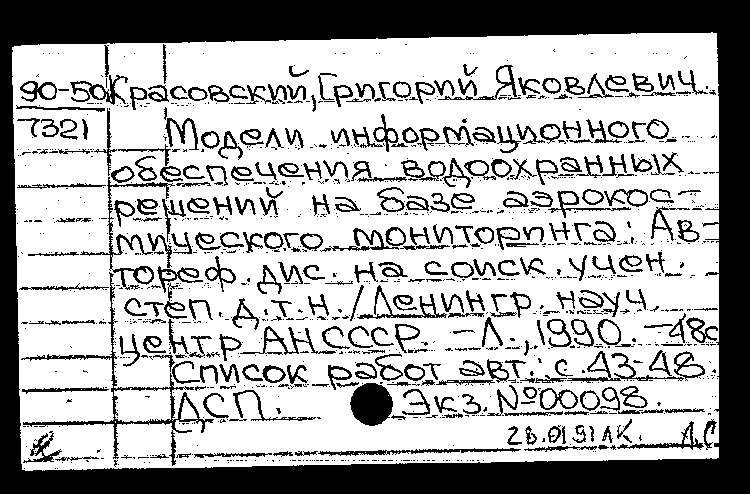 90-50 Красовский, Григорий Яковлевич
7321 Модели информационного
обеспечения водоохранных
решений на базе аэрокос-
мического мониторинга: Ав-
тореф. дис. на соиск. учен.
степ. д.т.н. / Ленингр. науч.
центр АНСССР. - Л., 1990. - 48с
Список работ авт.: с. 43-48.
ДСП. Экз. №00098.
28.01.91 ЛК. Л.С